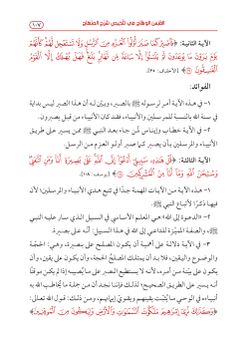 القبس الوهاج في تلخيص شرح المنهاج
١٠٧
الآية الثانية: ﴿فَاصْبِرْ كَمَا صَبَرَ أُولُو الْعَزْمِ مِنَ الرُّسُلِ وَلَا تَسْتَعْجِل لَّهُمْ كَأَنَّهُمْ
يَوْمَ يَرَوْنَ مَا يُوعَدُونَ لَمْ يَلْبَثُوا إِلَّا سَاعَةً مِّن نَّهَارٍ بَلَاغٌ فَهَلْ يُهْلَكُ إِلَّا الْقَوْمُ
الْفَاسِقُونَ﴾ [الأحقاف: ٣٥].
الفوائد:
١- في هذه الآية أمر لرسوله ﷺ بالصبر، ويبيّن له أن هذا الصبر ليس بداية
في سنة الله بالنسبة للمرسلين والأنبياء، فقد كان الأنبياء من قبل يصبرون.
٢- في الآية خطاب وإيناس لمن جاء بعد النبي ﷺ ممن يسير على طريق
الأنبياء والمرسلين بأن يصبر كما صبر أولو العزم من الرسل.
الآية الثالثة: ﴿قُلْ هَذِهِ سَبِيلِي أَدْعُو إِلَى اللَّهِ عَلَى بَصِيرَةٍ أَنَا وَمَنِ اتَّبَعَنِي
وَسُبْحَانَ اللَّهِ وَمَا أَنَا مِنَ الْمُشْرِكِينَ﴾ [يوسف: ١٠٨].
١- هذه الآية من الآيات المهمة جدًّا في تتبع هدي الأنبياء والمرسلين؛ لأنه
فيها ذكرًا لأتباع النبي ﷺ.
٢- الدعوة إلى الله؛ هي المعلم الأساسي في السبيل الذي سار عليه النبي
ﷺ، والصفة المميّزة للداعي إلى الله في هذا السبيل: أنه على بصيرة.
٣- في الآية دلالة على أهمية أن يكون المصلح على بصيرة، وهي: الحجة
والوضوح واليقين، فلا بد أن يمتلك المصلح الحجة، وأن يكون على يقين، وأن
يكون على بيّنة من أمره، لأنه لا يستطيع الصبر على ما يُصيبه إذا لم يكن موقنًا
أنه يسير على الطريق الصحيح؛ لذلك فإننا نجد أن من جملة ما يُخاطب الله به
أنبياءه في الوحي ما يُثبّت يقينهم ويقوّي إيمانهم، ومن ذلك: قول الله تعالى:
﴿وَكَذَلِكَ نُرِي إِبْرَاهِيمَ مَلَكُوتَ السَّمَاوَاتِ وَالْأَرْضِ وَلِيَكُونَ مِنَ الْمُوقِنِينَ﴾